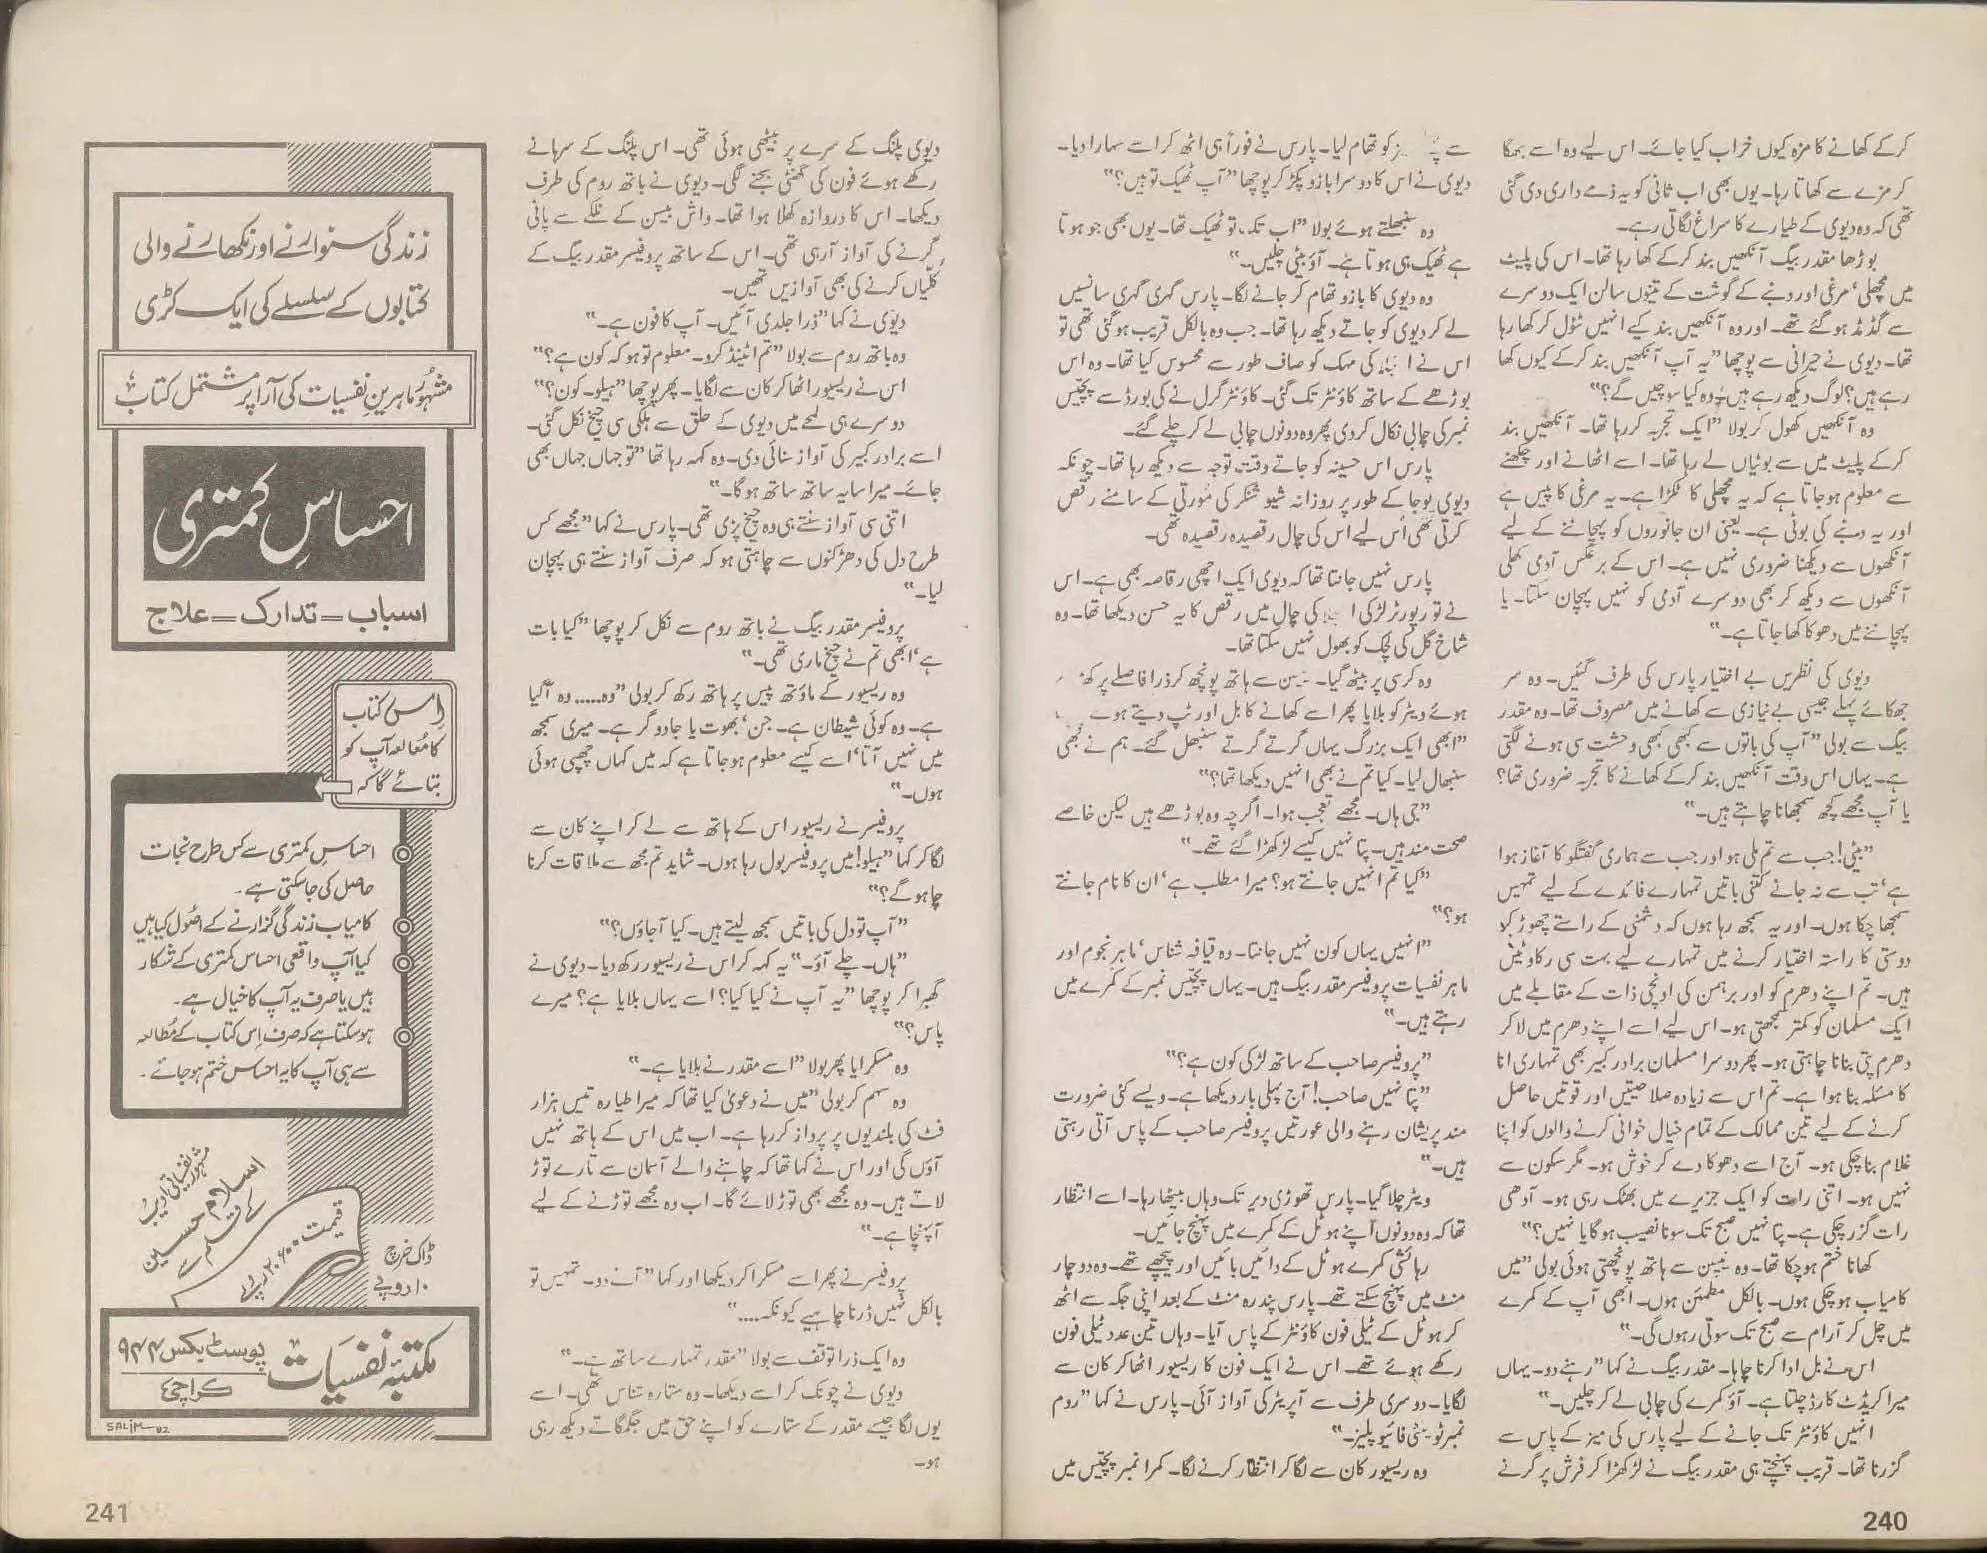 کرکے کھانے کا مزہ کیوں خراب کیا جائے۔ اس لیے وہ اسے بھگا
کر مزے سے کھاتا رہا۔ یوں بھی اب ثانی کو یہ ذمے داری دی گئی
تھی کہ وہ دیوی کے طیارے کا سراغ لگاتی رہے۔
بوڑھا مقدر بیگ آنکھیں بند کرکے کھا رہا تھا۔ اس کی پلیٹ
میں مچھلی، مرغی اور دنبے کے گوشت کے تینوں سالن ایک دوسرے
سے گڈمڈ ہو گئے تھے۔ اور وہ آنکھیں بند کیے انہیں ٹٹول کر کھا رہا
تھا۔ دیوی نے حیرانی سے پوچھا ”یہ آپ آنکھیں بند کرکے کیوں کھا
رہے ہیں؟ لوگ دیکھ رہے ہیں۔ وہ کیا سوچیں گے؟“
وہ آنکھیں کھول کر بولا ”ایک تجربہ کر رہا تھا۔ آنکھیں بند
کرکے پلیٹ میں سے بوٹیاں لے رہا تھا۔ اسے اٹھانے اور چکھنے
سے معلوم ہو جاتا ہے کہ یہ مچھلی کا ٹکڑا ہے۔ یہ مرغی کا پیس ہے
اور یہ دنبے کی بوٹی ہے۔ یعنی ان جانوروں کو پہچاننے کے لیے
آنکھوں سے دیکھنا ضروری نہیں ہے۔ اس کے برعکس آدمی کھلی
آنکھوں سے دیکھ کر بھی دوسرے آدمی کو نہیں پہچان سکتا۔ یا
پہچاننے میں دھوکا کھا جاتا ہے۔“
دیوی کی نظریں بے اختیار پارس کی طرف گئیں۔ وہ سر
جھکائے پہلے جیسی بے نیازی سے کھانے میں مصروف تھا۔ وہ مقدر
بیگ سے بولی ”آپ کی باتوں سے کبھی کبھی وحشت سی ہونے لگتی
ہے۔ یہاں اس وقت آنکھیں بند کرکے کھانے کا تجربہ ضروری تھا؟
یا آپ مجھے کچھ سمجھانا چاہتے ہیں۔“
”بیٹی! جب سے تم ملی ہو اور جب سے ہماری گفتگو کا آغاز ہوا
ہے، تب سے نہ جانے کتنی باتیں تمہارے فائدے کے لیے تمہیں
سمجھا چکا ہوں۔ اور یہ سمجھ رہا ہوں کہ دشمنی کے راستے چھوڑ کو
دوستی کا راستہ اختیار کرنے میں تمہارے لیے بہت سی رکاوٹیں
ہیں۔ تم اپنے دھرم کو اور برہمن کی اونچی ذات کے مقابلے میں
ایک مسلمان کو کمتر سمجھتی ہو۔ اس لیے اسے اپنے دھرم میں لا کر
دھرم پتی بنانا چاہتی ہو۔ پھر دوسرا مسلمان برادر کبیر بھی تمہاری انا
کا مسئلہ بنا ہوا ہے۔ تم اس سے زیادہ صلاحیتیں اور قوتیں حاصل
کرنے کے لیے تین ممالک کے تمام خیال خوانی کرنے والوں کو اپنا
غلام بنا چکی ہو۔ آج اسے دھوکا دے کر خوش ہو۔ مگر سکون سے
نہیں ہو۔ اتنی رات کو ایک جزیرے میں بھٹک رہی ہو۔ آدھی
رات گزر چکی ہے۔ پتا نہیں صبح تک سونا نصیب ہوگا یا نہیں؟“
کھانا ختم ہو چکا تھا۔ وہ نیپکن سے ہاتھ پونچھتی ہوئی بولی ”میں
کامیاب ہو چکی ہوں۔ بالکل مطمئن ہوں۔ ابھی آپ کے کمرے
میں چل کر آرام سے صبح تک سوتی رہوں گی۔“
اس نے بل ادا کرنا چاہا۔ مقدر بیگ نے کہا ”رہنے دو۔ یہاں
میرا کریڈٹ کارڈ چلتا ہے۔ آؤ کمرے کی چابی لے کر چلیں۔“
انہیں کاؤنٹر تک جانے کے لیے پارس کی میز کے پاس سے
گزرنا تھا۔ قریب پہنچتے ہی مقدر بیگ نے لڑکھڑا کر فرش پر گرنے
سے کو تھام لیا۔ پارس نے فوراً ہی اٹھ کر اسے سہارا دیا۔
دیوی نے اس کا دوسرا بازو پکڑ کر پوچھا ”آپ ٹھیک تو ہیں؟“
وہ سنبھلتے ہوئے بولا ”اب تک تو ٹھیک تھا۔ یوں بھی جو ہوتا
ہے ٹھیک ہی ہوتا ہے۔ آؤ بیٹی چلیں۔“
وہ دیوی کا بازو تھام کر جانے لگا۔ پارس گہری گہری سانسیں
لے کر دیوی کو جاتے دیکھ رہا تھا۔ جب وہ بالکل قریب ہو گئی تھی تو
اس نے کی مہک کو صاف طور سے محسوس کیا تھا۔ وہ اس
بوڑھے کے ساتھ کاؤنٹر تک گئی۔ کاؤنٹر گرل نے کی بورڈ سے پچیس
نمبر کی چابی نکال کر دی پھر وہ دونوں چابی لے کر چلے گئے۔
پارس اس حسینہ کو جاتے وقت توجہ سے دیکھ رہا تھا۔ چونکہ
دیوی پوجا کے طور پر روزانہ شیو شنکر کی مورتی کے سامنے رقص
کرتی تھی اس لیے اس کی چال رقصیدہ رقصیدہ تھی۔
پارس نہیں جانتا تھا کہ دیوی ایک اچھی رقاصہ بھی ہے۔ اس
نے تو رپورٹر لڑکی کی چال میں رقص کا یہ حسن دیکھا تھا۔ وہ
شاخ گل کی لچک کو بھول نہیں سکتا تھا۔
وہ کرسی پر بیٹھ گیا۔ سے ہاتھ پونچھ کر ذرا فاصلے پر
ہوئے ویٹر کو بلایا پھر اسے کھانے کا بل اور ٹپ دیتے ہوئے
”ابھی ایک بزرگ یہاں گرتے گرتے سنبھل گئے۔ ہم نے بھی
سنبھال لیا۔ کیا تم نے بھی انہیں دیکھا تھا؟“
”جی ہاں۔ مجھے تعجب ہوا۔ اگرچہ وہ بوڑھے ہیں لیکن خاصے
صحت مند ہیں۔ پتا نہیں کیسے لڑکھڑا گئے تھے۔“
”کیا تم انہیں جانتے ہو؟ میرا مطلب ہے، ان کا نام جانتے
ہو؟“
”انہیں یہاں کون نہیں جانتا۔ وہ قیافہ شناس، ماہر نجوم اور
ماہر نفسیات پروفیسر مقدر بیگ ہیں۔ یہاں پچیس نمبر کے کمرے میں
رہتے ہیں۔“
”پروفیسر صاحب کے ساتھ لڑکی کون ہے؟“
”پتا نہیں صاحب! آج پہلی بار دیکھا ہے۔ ویسے کئی ضرورت
مند پریشان رہنے والی عورتیں پروفیسر صاحب کے پاس آتی رہتی
ہیں۔“
ویٹر چلا گیا۔ پارس تھوڑی دیر تک وہاں بیٹھا رہا۔ اسے انتظار
تھا کہ وہ دونوں اپنے ہوٹل کے کمرے میں پہنچ جائیں۔
رہائشی کمرے ہوٹل کے دائیں بائیں اور پیچھے تھے۔ وہ دو چار
منٹ میں پہنچ سکتے تھے۔ پارس پندرہ منٹ کے بعد اپنی جگہ سے اٹھ
کر ہوٹل کے ٹیلی فون کاؤنٹر کے پاس آیا۔ وہاں تین عدد ٹیلی فون
رکھے ہوئے تھے۔ اس نے ایک فون کا ریسیور اٹھا کر کان سے
لگایا۔ دوسری طرف سے آپریٹر کی آواز آئی۔ پارس نے کہا ”روم
نمبر ٹونٹی فائیو پلیز۔“
وہ ریسیور کان سے لگا کر انتظار کرنے لگا۔ کمرا نمبر پچیس میں
240
دیوی پلنگ کے سرے پر بیٹھی ہوئی تھی۔ اس پلنگ کے سرہانے
رکھے ہوئے فون کی گھنٹی بجنے لگی۔ دیوی نے باتھ روم کی طرف
دیکھا۔ اس کا دروازہ کھلا ہوا تھا۔ واش بیسن کے نلکے سے پانی
گرنے کی آواز آرہی تھی۔ اس کے ساتھ پروفیسر مقدر بیگ کے
کلّیاں کرنے کی بھی آوازیں تھیں۔
دیوی نے کہا ”ذرا جلدی آئیں۔ آپ کا فون ہے۔“
وہ باتھ روم سے بولا ”تم اٹینڈ کرو۔ معلوم تو ہو کہ کون ہے؟“
اس نے ریسیور اٹھا کر کان سے لگایا۔ پھر پوچھا ”ہیلو۔ کون؟“
دوسرے ہی لمحے میں دیوی کے حلق سے ہلکی سی چیخ نکل گئی۔
اسے برادر کبیر کی آواز سنائی دی۔ وہ کہہ رہا تھا ”تو جہاں جہاں بھی
جائے۔ میرا سایہ ساتھ ساتھ ہوگا۔“
اتنی سی آواز سنتے ہی وہ چیخ پڑی تھی۔ پارس نے کہا ”مجھے کس
طرح دل کی دھڑکنوں سے چاہتی ہو کہ صرف آواز سنتے ہی پہچان
لیا۔“
پروفیسر مقدر بیگ نے باتھ روم سے نکل کر پوچھا ”کیا بات
ہے، ابھی تم نے چیخ ماری تھی۔“
وہ ریسیور کے ماؤتھ پیس پر ہاتھ رکھ کر بولی ”وہ..... وہ آگیا
ہے۔ وہ کوئی شیطان ہے۔ جن، بھوت یا جادوگر ہے۔ میری سمجھ
میں نہیں آتا، اسے کیسے معلوم ہو جاتا ہے کہ میں کہاں چھپی ہوئی
ہوں۔“
پروفیسر نے ریسیور اس کے ہاتھ سے لے کر اپنے کان سے
لگا کر کہا ”ہیلو! میں پروفیسر بول رہا ہوں۔ شاید تم مجھ سے ملاقات کرنا
چاہو گے؟“
”آپ تو دل کی باتیں سمجھ لیتے ہیں۔ کیا آجاؤں؟“
”ہاں۔ چلے آؤ۔“ یہ کہہ کر اس نے ریسیور رکھ دیا۔ دیوی نے
گھبرا کر پوچھا ”یہ آپ نے کیا کیا؟ اسے یہاں بلایا ہے؟ میرے
پاس؟“
وہ مسکرایا پھر بولا ”اسے مقدر نے بلایا ہے۔“
وہ سہم کر بولی ”میں نے دعویٰ کیا تھا کہ میرا طیارہ تیس ہزار
فٹ کی بلندیوں پر پرواز کر رہا ہے۔ اب میں اس کے ہاتھ نہیں
آؤں گی اور اس نے کہا تھا کہ چاہنے والے آسمان سے تارے توڑ
لاتے ہیں۔ وہ مجھے بھی توڑ لائے گا۔ اب وہ مجھے توڑنے کے لیے
آ پہنچا ہے۔“
پروفیسر نے پھر اسے مسکرا کر دیکھا اور کہا ”آنے دو۔ تمہیں تو
بالکل نہیں ڈرنا چاہیے کیونکہ....“
وہ ایک ذرا توقف سے بولا ”مقدر تمہارے ساتھ ہے۔“
دیوی نے چونک کر اسے دیکھا۔ وہ ستارہ شناس تھی۔ اسے
یوں لگا جیسے مقدر کے ستارے کو اپنے حق میں جگمگاتے دیکھ رہی
ہو۔
زندگی سنوارنے اور نکھارنے والی
کتابوں کے سلسلے کی ایک کڑی
مشہور ماہرین نفسیات کی آرا پر مشتمل کتاب
احساسِ کمتری
اسباب – تدارک – علاج
اِس کتاب
کا مُطالعہ آپ کو
بتائے گا کہ
احساسِ کمتری سے کس طرح نجات
حاصل کی جاسکتی ہے۔
کامیاب زندگی گزارنے کے اصُول کیا ہیں
کیا آپ واقعی احساس کمتری کے شکار
ہیں یا صرف یہ آپ کا خیال ہے۔
ہو سکتا ہے کہ صرف اِس کتاب کے مُطالعہ
سے ہی آپ کا یہ احساس ختم ہو جائے۔
مشہور نفسیاتی ادیب
اسلام حسین
کے قلم سے
قیمت ۲۰/۰۰ روپے
ڈاک خرچ
۱۰ روپے
مکتبۂ نفسیات
پوسٹ بکس ۹۴۴
کراچی
SALIM-82
241